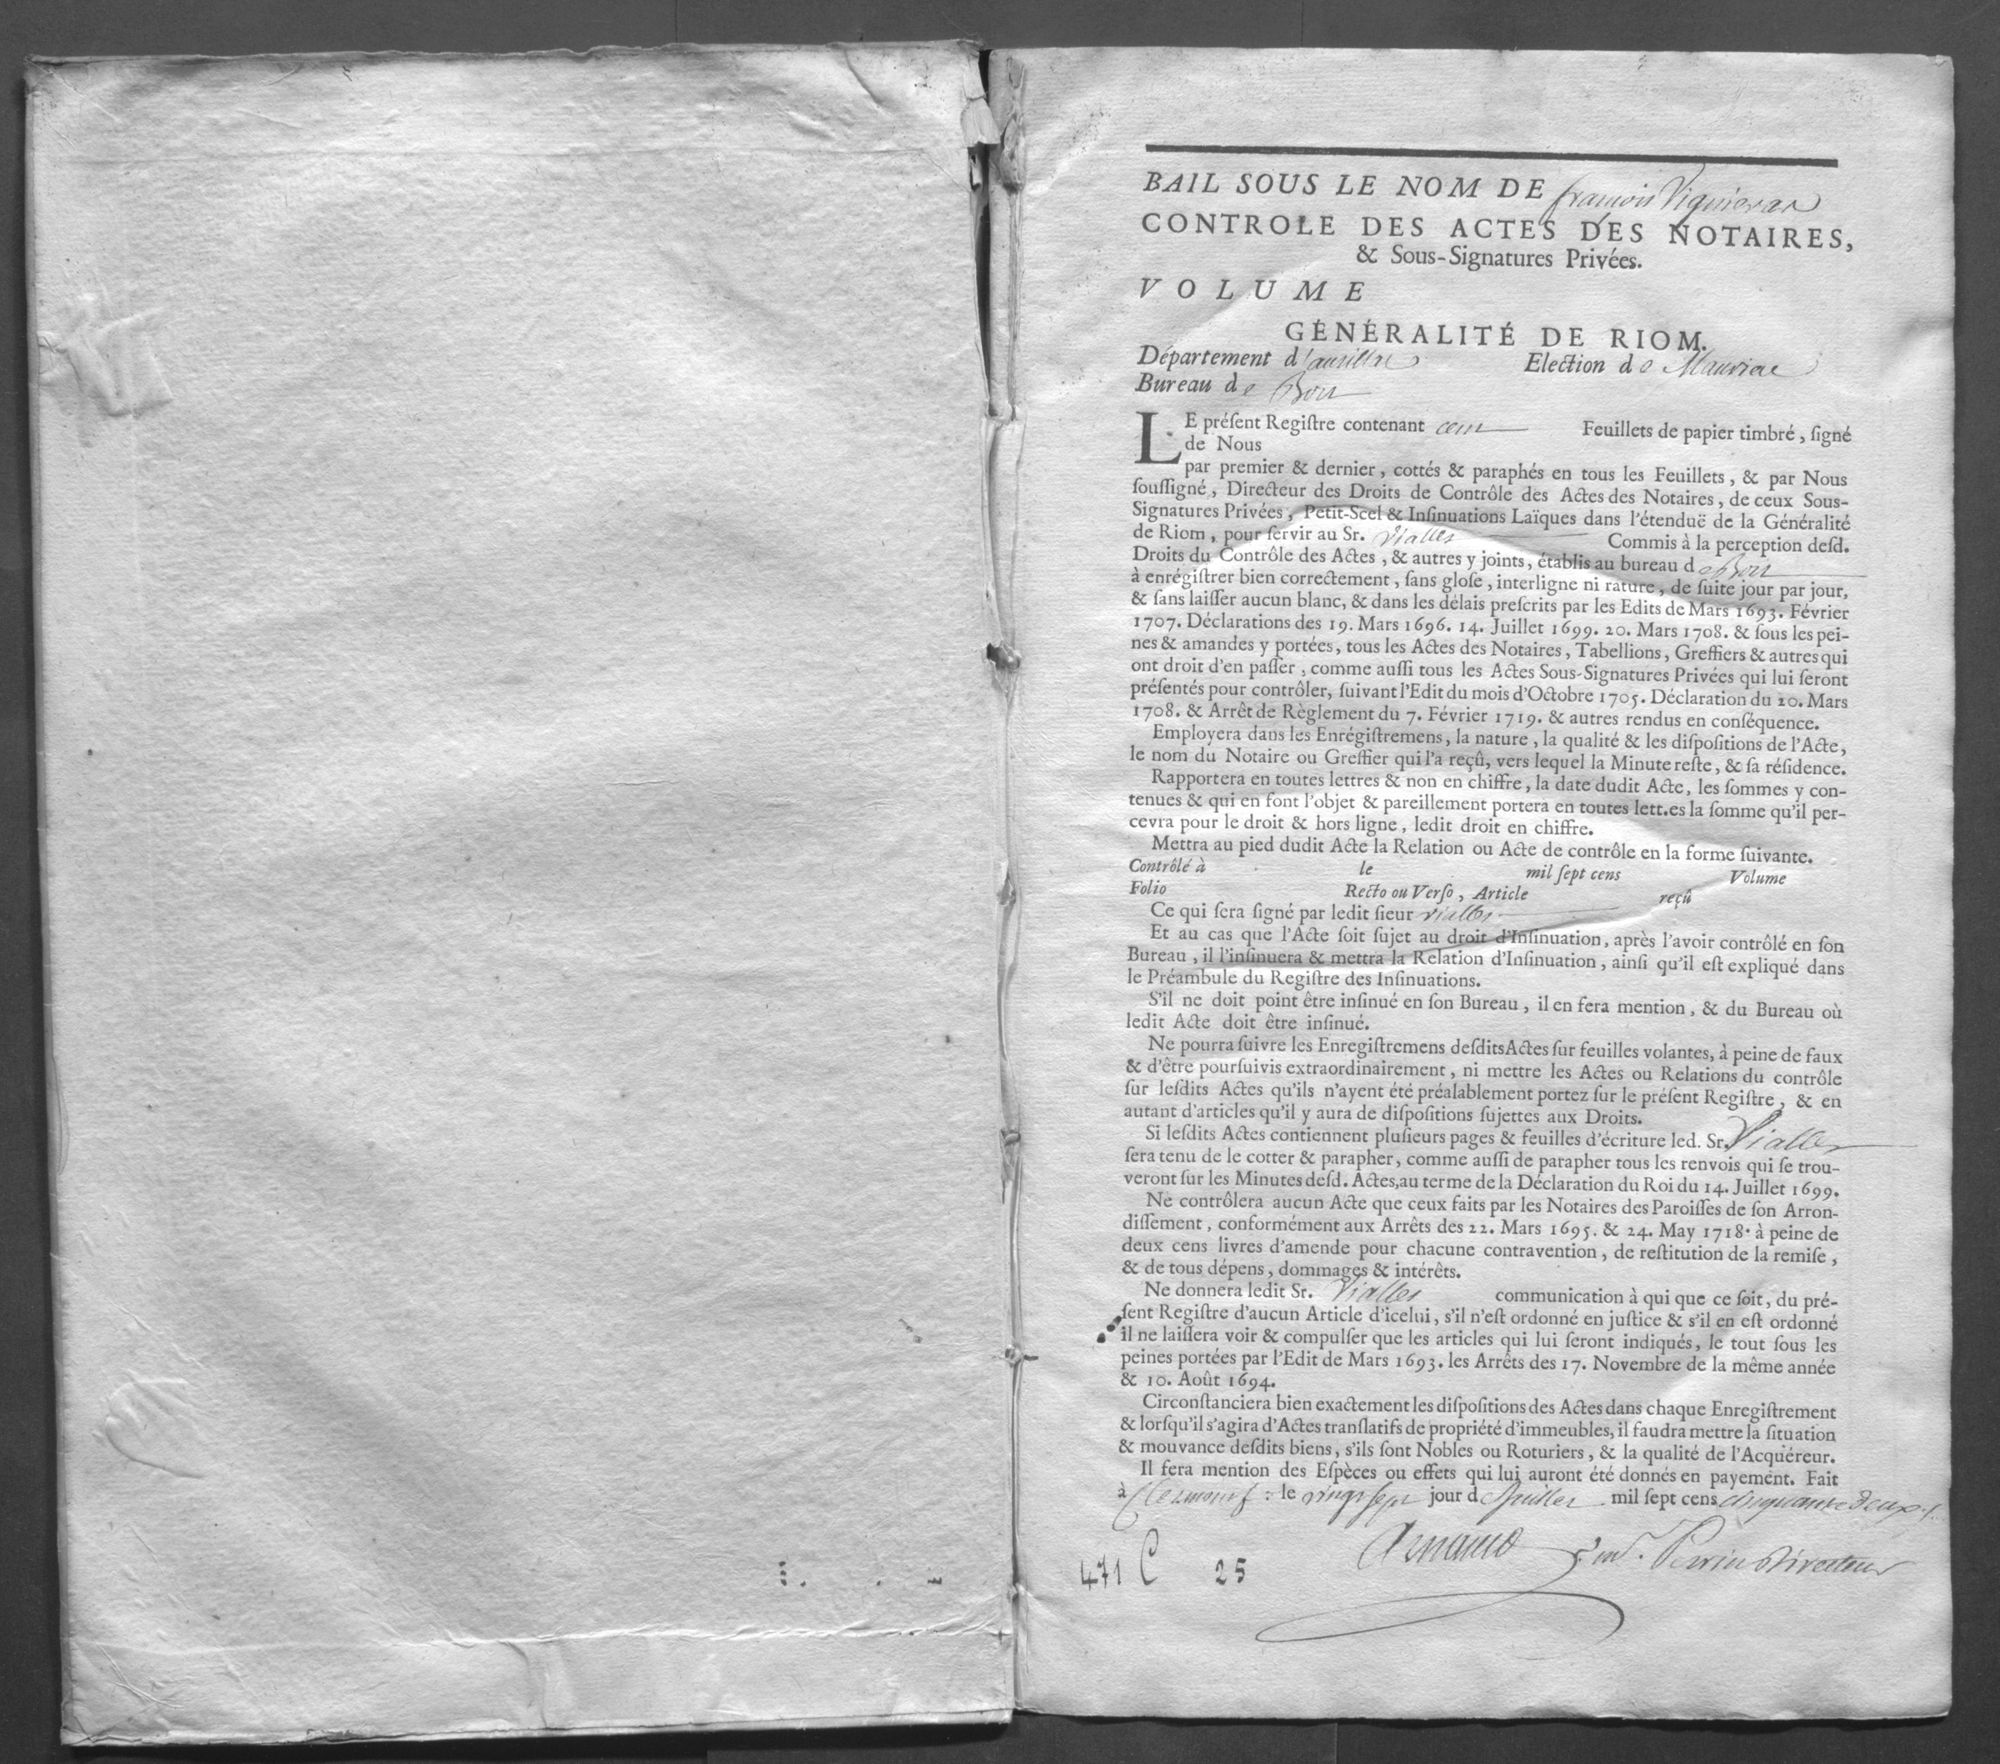 BAIL SOUS LE NOM DE françois
CONTROLE DES ACTES DES NOTAIRES,
& Sous-Signatures Privées.
VOLUME
GÉNÉRALITÉ DE RIOM.
Département d'aurillac Election de Mauriac
Bureau de Bort
LE préſent Regiſtre contenant cent Feuillets de papier timbré, ſigné
de Nous
par premier & dernier, cottés & paraphés en tous les Feuillets, & par Nous
ſouſſigné, Directeur des Droits de Contrôle des Actes des Notaires, de ceux Sous-
Signatures Privées, Petit-Scel & Inſinuations Laïques dans l'étenduë de la Généralité
de Riom, pour ſervir au Sr. Vialles Commis à la perception deſd.
Droits du Contrôle des Actes, & autres y joints, établis au bureau de Bort
à enrégiſtrer bien correctement, ſans gloſe, interligne ni rature, de ſuite jour par jour,
& ſans laiſſer aucun blanc, & dans les délais preſcrits par les Edits de Mars 1693. Février
1707. Déclarations des 19. Mars 1696. 14. Juillet 1699. 20. Mars 1708. & ſous les pei-
nes & amandes y portées, tous les Actes des Notaires, Tabellions, Greffiers & autres qui
ont droit d'en paſſer, comme auſſi tous les Actes Sous-Signatures Privées qui lui ſeront
préſentés pour contrôler, ſuivant l'Edit du mois d'Octobre 1705. Déclaration du 20. Mars
1708. & Arrêt de Règlement du 7. Février 1719. & autres rendus en conſéquence.
Employera dans les Enrégiſtremens, la nature, la qualité & les diſpoſitions de l'Acte,
le nom du Notaire ou Greffier qui l'a reçû, vers lequel la Minute reſte, & ſa réſidence.
Rapportera en toutes lettres & non en chiffre, la date dudit Acte, les ſommes y con-
tenues & qui en font l'objet & pareillement portera en toutes lett.es la ſomme qu'il per-
cevra pour le droit & hors ligne, ledit droit en chiffre.
Mettra au pied dudit Acte la Relation ou Acte de contrôle en la forme ſuivante.
Contrôlé à le mil ſept cens Volume
Folio Recto ou Verſo, Article reçû
Ce qui ſera ſigné par ledit ſieur vialles
Et au cas que l'Acte ſoit ſujet au droit d'Inſinuation, après l'avoir contrôlé en ſon
Bureau, il l'inſinuera & mettra la Relation d'Inſinuation, ainſi qu'il eſt expliqué dans
le Préambule du Regiſtre des Inſinuations.
S'il ne doit point être inſinué en ſon Bureau, il en fera mention, & du Bureau où
ledit Acte doit être inſinué.
Ne pourra ſuivre les Enregiſtremens deſdits Actes ſur feuilles volantes, à peine de faux
& d'être pourſuivis extraordinairement, ni mettre les Actes ou Relations du contrôle
ſur leſdits Actes qu'ils n'ayent été préalablement portez ſur le préſent Regiſtre, & en
autant d'articles qu'il y aura de diſpoſitions ſujettes aux Droits.
Si leſdits Actes contiennent pluſieurs pages & feuilles d'écriture led. Sr. Vialles
ſera tenu de le cotter & parapher, comme auſſi de parapher tous les renvois qui ſe trou-
veront ſur les Minutes deſd. Actes, au terme de la Déclaration du Roi du 14. Juillet 1699.
Ne contrôlera aucun Acte que ceux faits par les Notaires des Paroiſſes de ſon Arron-
diſſement, conformément aux Arrêts des 22. Mars 1695. & 24. May 1718. à peine de
deux cens livres d'amende pour chacune contravention, de reſtitution de la remiſe,
& de tous dépens, dommages & intérêts.
Ne donnera ledit Sr. Vialles communication à qui que ce ſoit, du pré-
ſent Regiſtre d'aucun Article d'icelui, s'il n'eſt ordonné en juſtice & s'il en eſt ordonné
il ne laiſſera voir & compulſer que les articles qui lui ſeront indiqués, le tout ſous les
peines portées par l'Edit de Mars 1693. les Arrêts des 17. Novembre de la même année
& 10. Août 1694.
Circonſtanciera bien exactement les diſpoſitions des Actes dans chaque Enregiſtrement
& lorſqu'il s'agira d'Actes tranſlatifs de propriété d'immeubles, il faudra mettre la ſituation
& mouvance deſdits biens, s'ils ſont Nobles ou Roturiers, & la qualité de l'Acquéreur.
Il fera mention des Eſpèces ou effets qui lui auront été donnés en payement. Fait
à Clermont : le vingt sept jour de Juillet mil ſept cens cinquante deux
Arnaud Perrin directeur
471 C 25